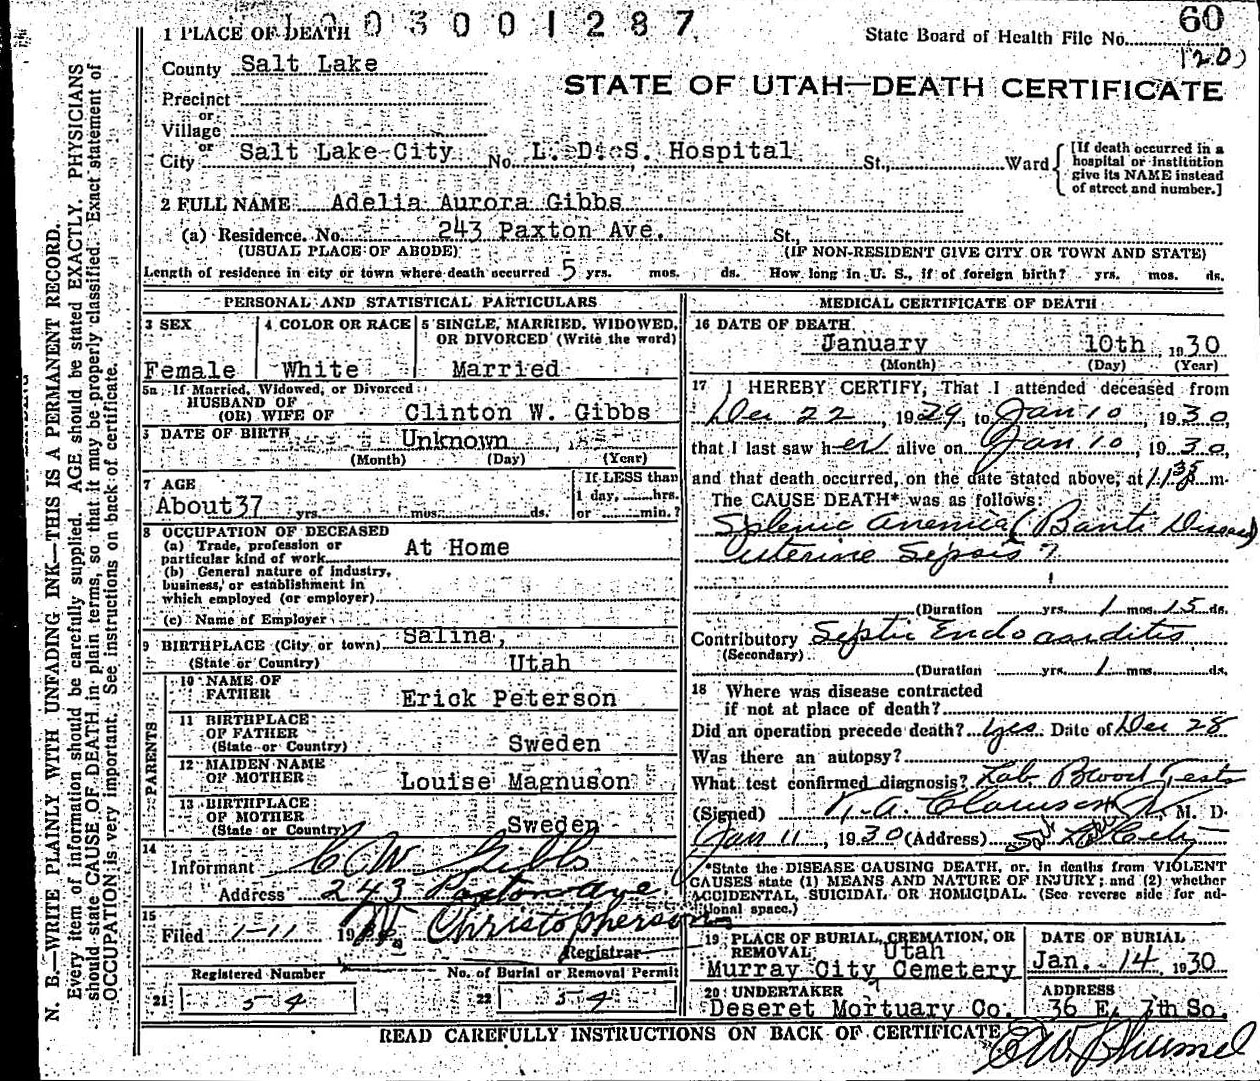 1003001287
60
1 PLACE OF DEATH
State Board of Health File No.
(20)
County Salt Lake
STATE OF UTAH—DEATH CERTIFICATE
Precinct
or
Village
or
City Salt Lake City No. L. D. S. Hospital St., Ward
[If death occurred in a hospital or institution give its NAME instead of street and number.]
2 FULL NAME Adelia Aurora Gibbs
(a) Residence. No. 243 Paxton Ave. St.,
(USUAL PLACE OF ABODE) (IF NON-RESIDENT GIVE CITY OR TOWN AND STATE)
Length of residence in city or town where death occurred 5 yrs. mos. ds. How long in U. S., if of foreign birth? yrs. mos. ds.
PERSONAL AND STATISTICAL PARTICULARS
3 SEX
Female
4 COLOR OR RACE
White
5 SINGLE, MARRIED, WIDOWED, OR DIVORCED (Write the word)
Married
5a If Married, Widowed, or Divorced
HUSBAND OF
(OR) WIFE OF Clinton W. Gibbs
DATE OF BIRTH Unknown
(Month) (Day) (Year)
7 AGE
About 37 yrs. mos. ds.
If LESS than
1 day, hrs.
or min.?
8 OCCUPATION OF DECEASED
(a) Trade, profession or
particular kind of work At Home
(b) General nature of industry,
business, or establishment in
which employed (or employer)
(c) Name of Employer
9 BIRTHPLACE (City or town) Salina,
(State or Country) Utah
PARENTS
10 NAME OF
FATHER Erick Peterson
11 BIRTHPLACE
OF FATHER
(State or Country) Sweden
12 MAIDEN NAME
OF MOTHER Louise Magnuson
13 BIRTHPLACE
OF MOTHER
(State or Country) Sweden
14
Informant C W Gibbs
Address 243 Paxton Ave.
15
Filed 1-11 19
Christopherson
Registrar
Registered Number
21 54
No. of Burial or Removal Permit
22 54
MEDICAL CERTIFICATE OF DEATH
16 DATE OF DEATH
January 10th 1930
(Month) (Day) (Year)
17 I HEREBY CERTIFY, That I attended deceased from
Dec 22, 1929, to Jan 10, 1930,
that I last saw her alive on Jan 10, 1930,
and that death occurred, on the date stated above, at 1135 p m.
The CAUSE DEATH* was as follows:
Splenic Anemia (Banti Disease)
Uterine Sepsis ?
(Duration yrs. 1 mos. 15 ds.
Contributory Septic Endocarditis
(Secondary)
(Duration yrs. 1 mos. ds.
18 Where was disease contracted
if not at place of death?
Did an operation precede death? Yes Date of Dec 28
Was there an autopsy?
What test confirmed diagnosis? Lab Blood Tests
(Signed) M. D.
Jan 11, 1930 (Address) Salt Lake City
*State the DISEASE CAUSING DEATH, or, in deaths from VIOLENT
CAUSES state (1) MEANS AND NATURE OF INJURY; and (2) whether
ACCIDENTAL, SUICIDAL OR HOMICIDAL. (See reverse side for ad-
ditional space.)
19 PLACE OF BURIAL, CREMATION, OR
REMOVAL Utah
Murray City Cemetery
DATE OF BURIAL
Jan. 14, 1930
20 UNDERTAKER
Deseret Mortuary Co.
ADDRESS
36 E. 7th So.
READ CAREFULLY INSTRUCTIONS ON BACK OF CERTIFICATE
N. B.—WRITE PLAINLY WITH UNFADING INK—THIS IS A PERMANENT RECORD.
Every item of information should be carefully supplied. AGE should be stated EXACTLY. PHYSICIANS
should state CAUSE OF DEATH in plain terms, so that it may be properly classified. Exact statement of
OCCUPATION is very important. See instructions on back of certificate.